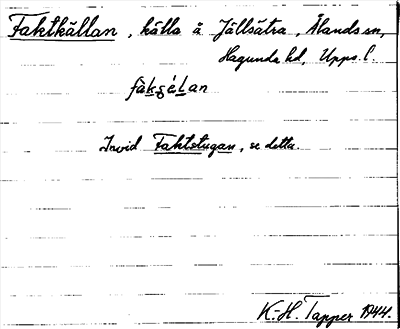 Faktkällan, källa å Jällsätra, Ålands sn,
Hagunda hd, Upps. l.
Invid Faktstugan, se detta.
K.-H. Tapper 1944.